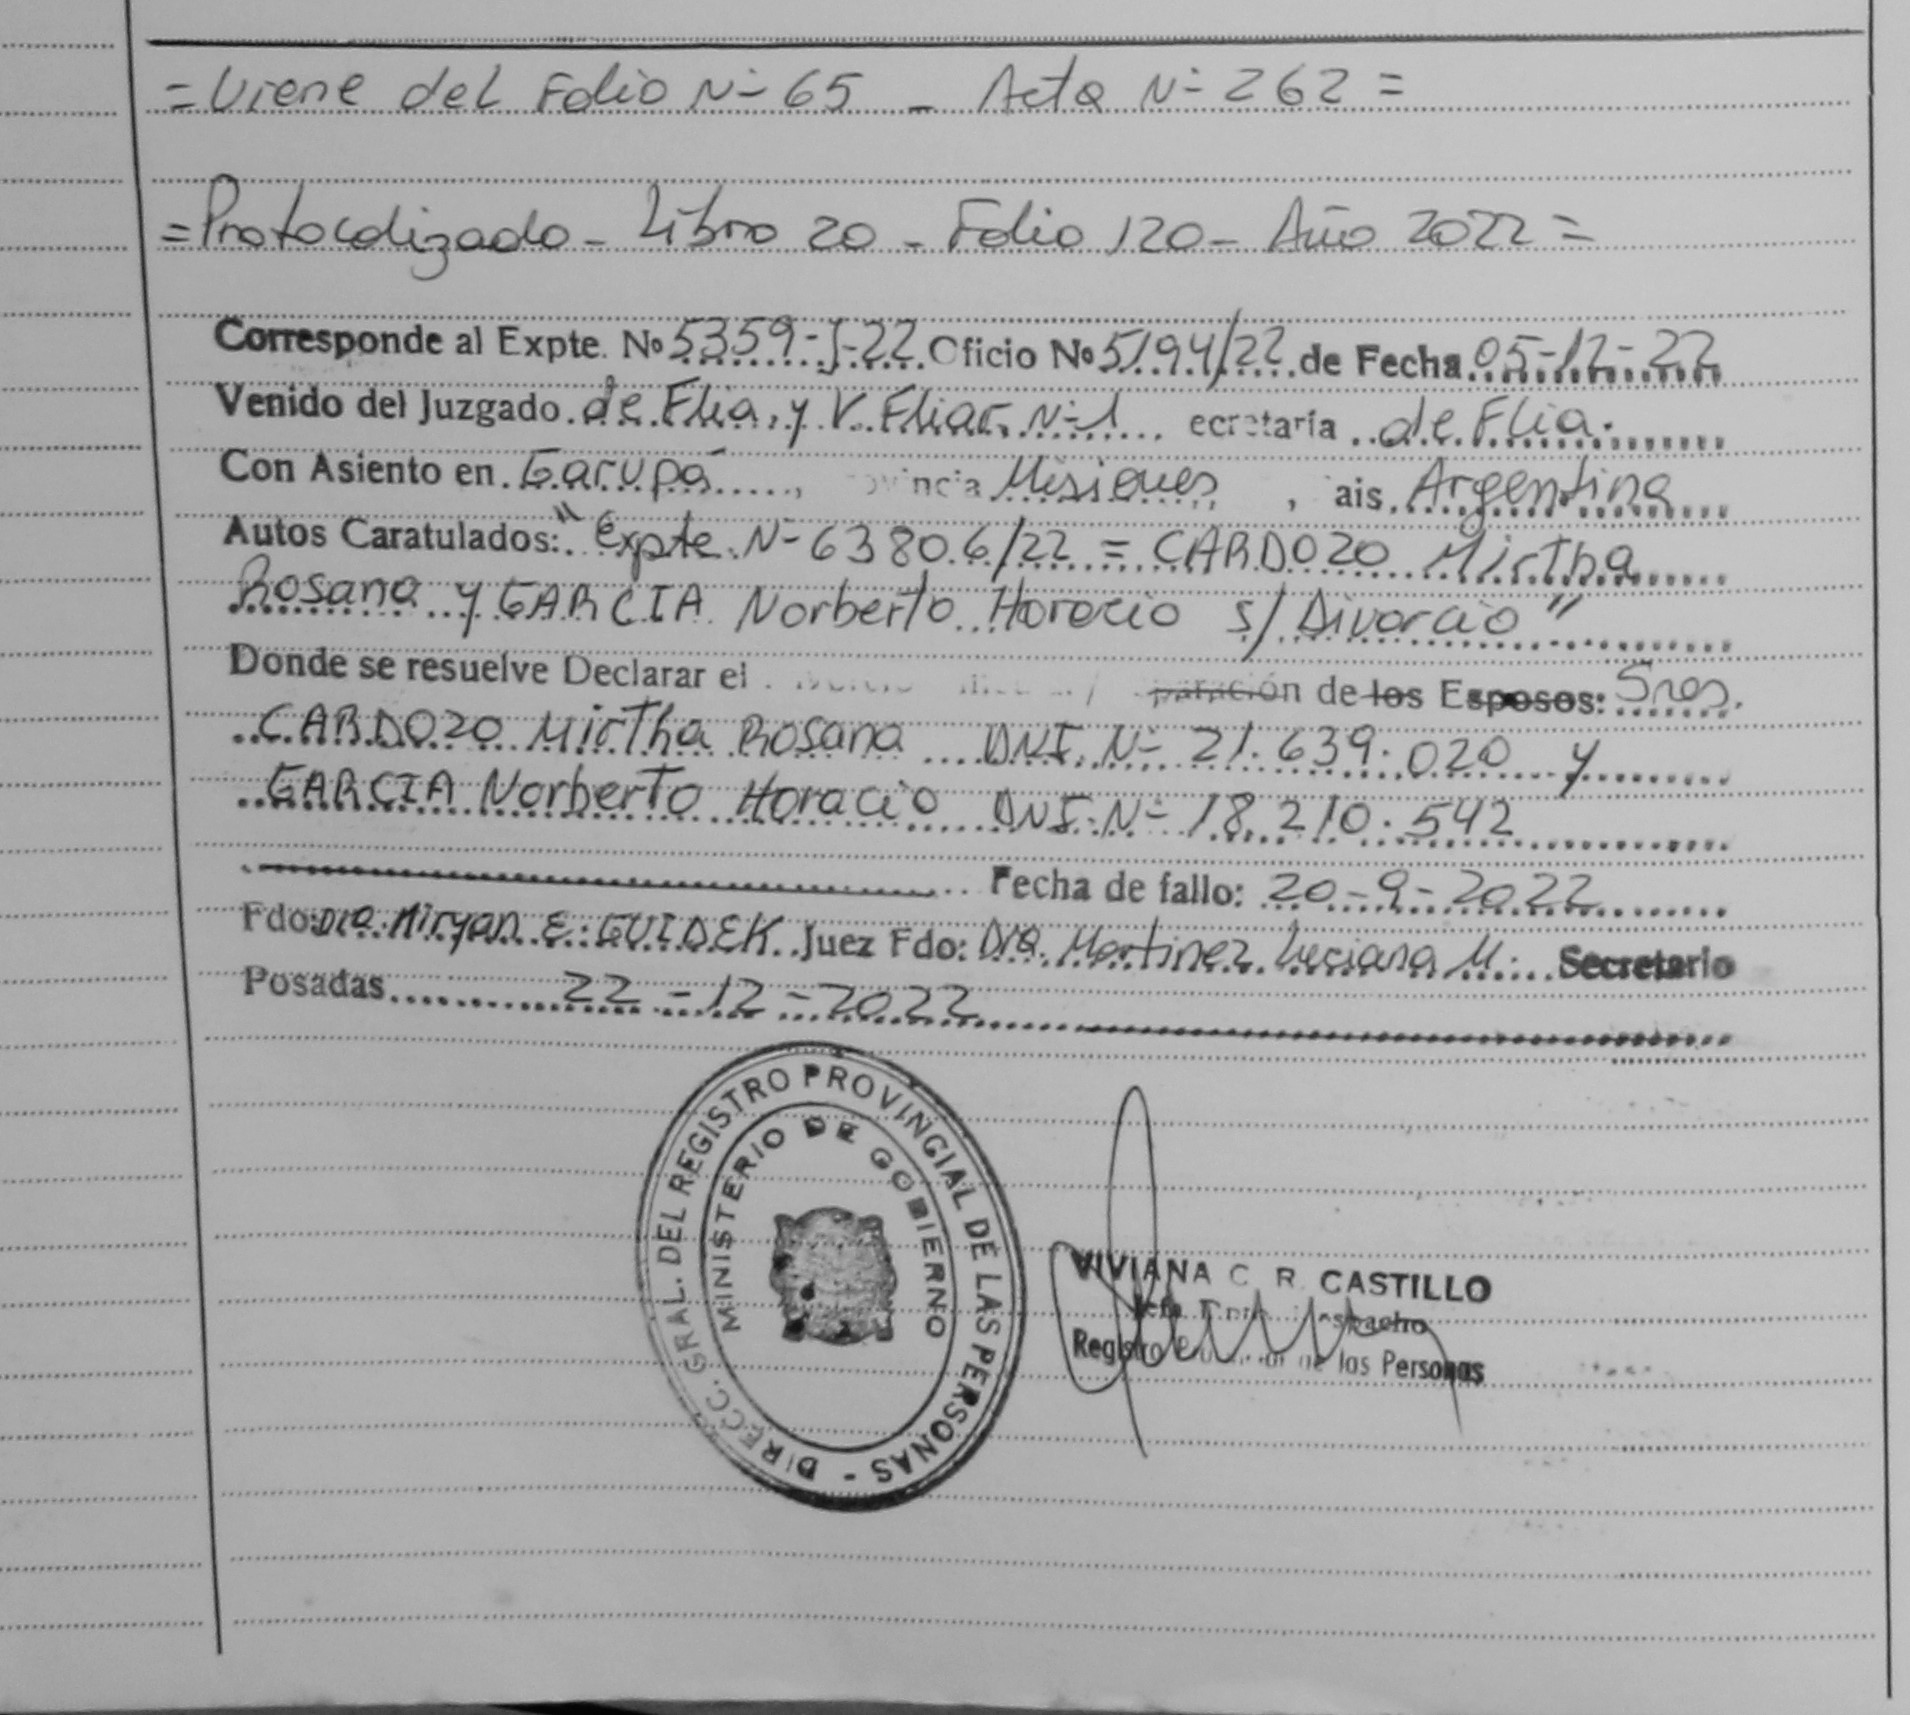 = Viene del Folio N- 65 - Acta N- 262 =
= Protocolizado - Libro 20 - Folio 120 - Año 2022 =
Corresponde al Expte. Nº 5359-J-22 Oficio Nº 5194/22 de Fecha 05-12-22
Venido del Juzgado de Flia. y V. Fliar. N-1 ecretaria de Flia.
Con Asiento en Garupá, vincia Misiones, ais Argentina
Autos Caratulados: "Expte. N- 63806/22 = CARDOZO Mirtha
Rosana y GARCIA Norberto Horacio s/ Divorcio"
Donde se resuelve Declarar el paración de los Esposos: Sres.
CARDOZO Mirtha Rosana DNI. N- 21.639.020 y
GARCIA Norberto Horacio DNI. N- 18.210.542
Fecha de fallo: 20-9-2022
Fdo: Dra. Miryan E. GUIDEK Juez Fdo: Dra. Martinez Luciana M. Secretario
Posadas 22-12-2022
DIRECC. GRAL. DEL REGISTRO PROVINCIAL DE LAS PERSONAS -
MINISTERIO DE GOBIERNO
VIVIANA C. R. CASTILLO
Jefa
Registro de las Personas